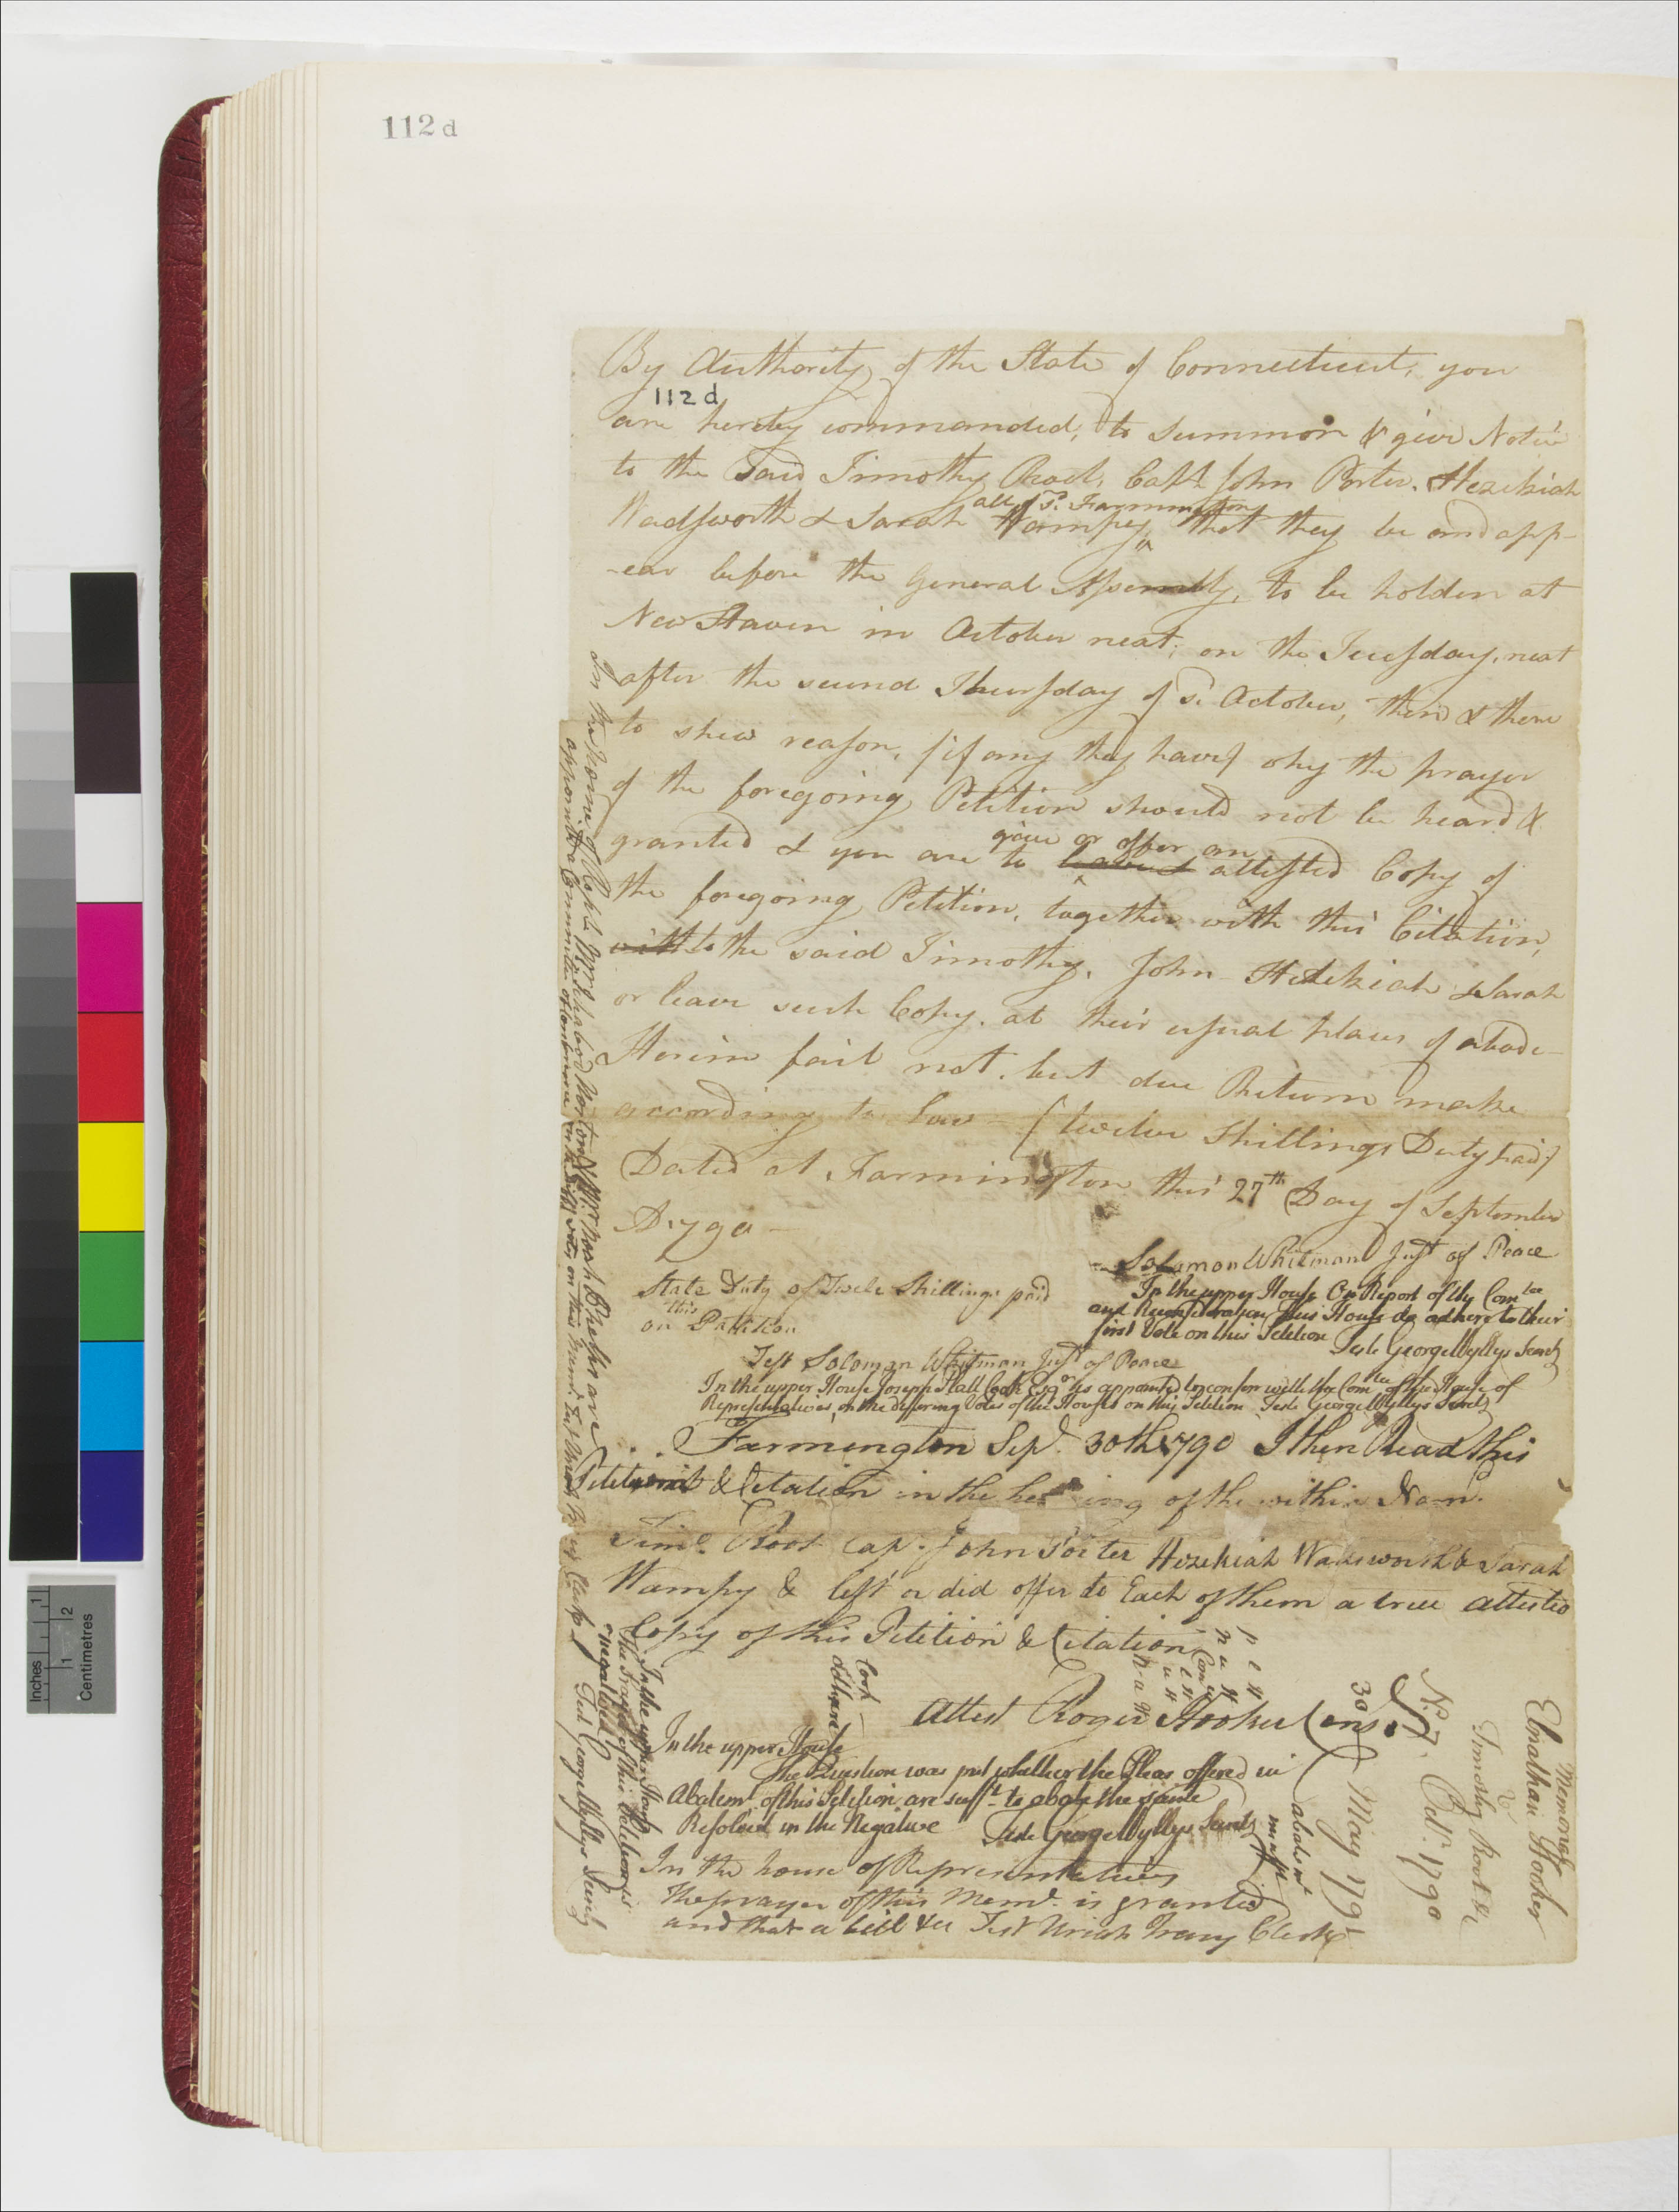 112 d
By Authority of the State of Connecticut, you
112 d
are hereby commanded, to Summon & give Notice
to the Said Timothy Root, Capt. John Porter, Hezekiah
all of sd. Farmington
Wadsworth & Sarah Wampey, ^ that they be and app-
-ear before the General Assembly, to be holden at
New Haven in October next, on the Tuesday, next
after the second Thursday of sd. October, then & there
to shew reason, (if any they have) why the prayer
of the foregoing Petition should not be heard &
give or offer an
granted & you are to ^ attested Copy of
the foregoing Petition, together with this Citation,
with to the said Timothy, John Hezekiah & Sarah
or leave such Copy, at their usual places of abode-
Herein fail not, but due Return make
according to law - (twelve Shillings Duty paid)
Dated at Farmington this 27th Day of September
AD. 1790 -
Solomon Whitman Just of Peace
State Duty of Twelve Shillings paid
this
on Petition
Test Solomon Whitman Just of Peace
In the upper House On Report of the Comtee
and Reconsideration this House do adhere to their
first Vote on this Petition
Teste George Wyllys Secrety
In the upper House Joseph Platt Cook Esqr is appointed to confer with the Comtee of the House of
Representatives, on the differing Votes of the Houses on this Petition Teste George Wyllys Secrety
Farmington Sept. 30th 1790 I then Read this
Petition & Citation in the hearing of the within Nam.
Timo. Root Cap. John Porter Hezekiah Wadsworth & Sarah
Wampy & left or did offer to Each of them a true attested
Copy of this Petition & Citation
Attest Roger Hooker Cons.
In the upper House
The Question was put whether the Pleas offered in
Abatemt. of this Petition are sufft. to abate the same
Resolved in the Negative Teste George Wyllys Secrety
In the house of Representatives
The prayer of this Meml. is granted
and that a bill &c Test Uriah Tracy Clerk
In the House of Capt. Morton Mr. are
appointed a Committee of Conference on the differing votes on this Meml. Test Uriah Tracy Clerk
In the upper House
the Prayer of this Petition is
negatived
Test George Wyllys Secrety
Cook
Adhered
abatemt
insufft
30
May 1791
No. 7.
Octr. 1790
Timothy Root &c
v
Elnathan Hooker
Memorial